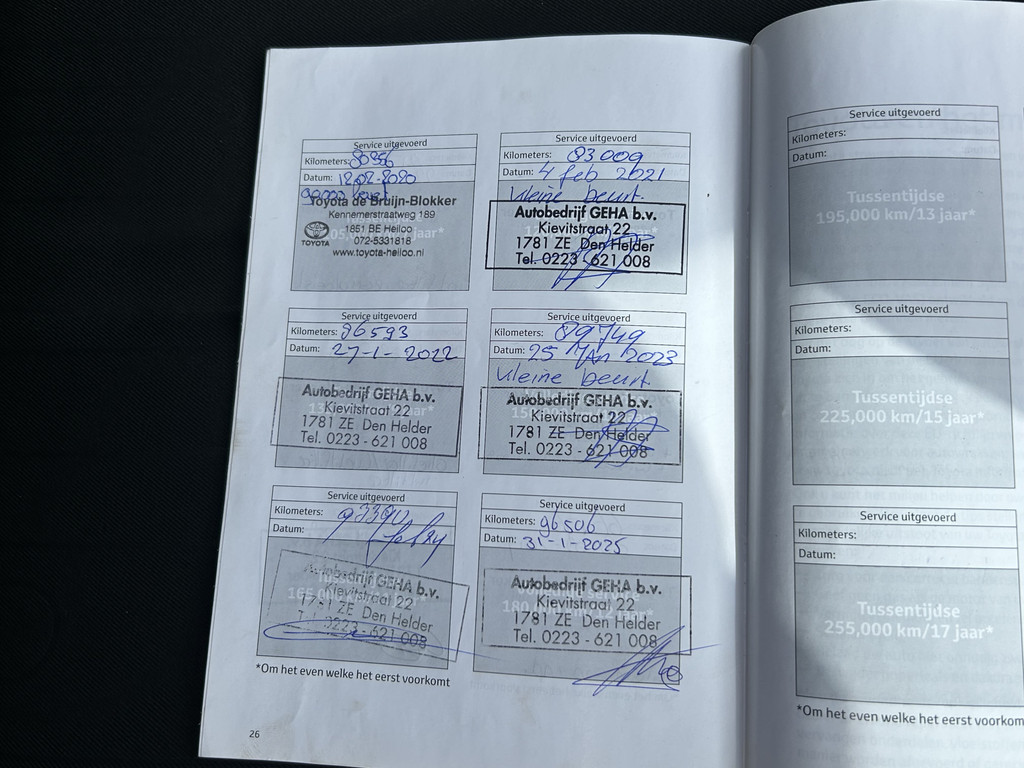 Service uitgevoerd
Kilometers: 80956
Datum: 12-02-2020
Toyota de Bruijn-Blokker
Kennemerstraatweg 189
1851 BE Heiloo
072-5331818
www.toyota-heiloo.nl
TOYOTA
Service uitgevoerd
Kilometers: 83009
Datum: 4 feb 2021
kleine beurt.
Autobedrijf GEHA b.v.
Kievitstraat 22
1781 ZE Den Helder
Tel. 0223 - 621 008
Service uitgevoerd
Kilometers: 86593
Datum: 27-1-2022
Autobedrijf GEHA b.v.
Kievitstraat 22
1781 ZE Den Helder
Tel. 0223 - 621 008
Service uitgevoerd
Kilometers: 89749
Datum: 25 Jan 2023
kleine beurt.
Autobedrijf GEHA b.v.
Kievitstraat 22
1781 ZE Den Helder
Tel. 0223 - 621 008
Service uitgevoerd
Kilometers: 93390
Datum:
Autobedrijf GEHA b.v.
Kievitstraat 22
1781 ZE Den Helder
Tel. 0223 - 621 008
Service uitgevoerd
Kilometers: 96506
Datum: 31-1-2025
Autobedrijf GEHA b.v.
Kievitstraat 22
1781 ZE Den Helder
Tel. 0223 - 621 008
*Om het even welke het eerst voorkomt
26
Service uitgevoerd
Kilometers:
Datum:
Tussentijdse
195,000 km/13 jaar*
Service uitgevoerd
Kilometers:
Datum:
Tussentijdse
225,000 km/15 jaar*
Service uitgevoerd
Kilometers:
Datum:
Tussentijdse
255,000 km/17 jaar*
*Om het even welke het eerst voorkom